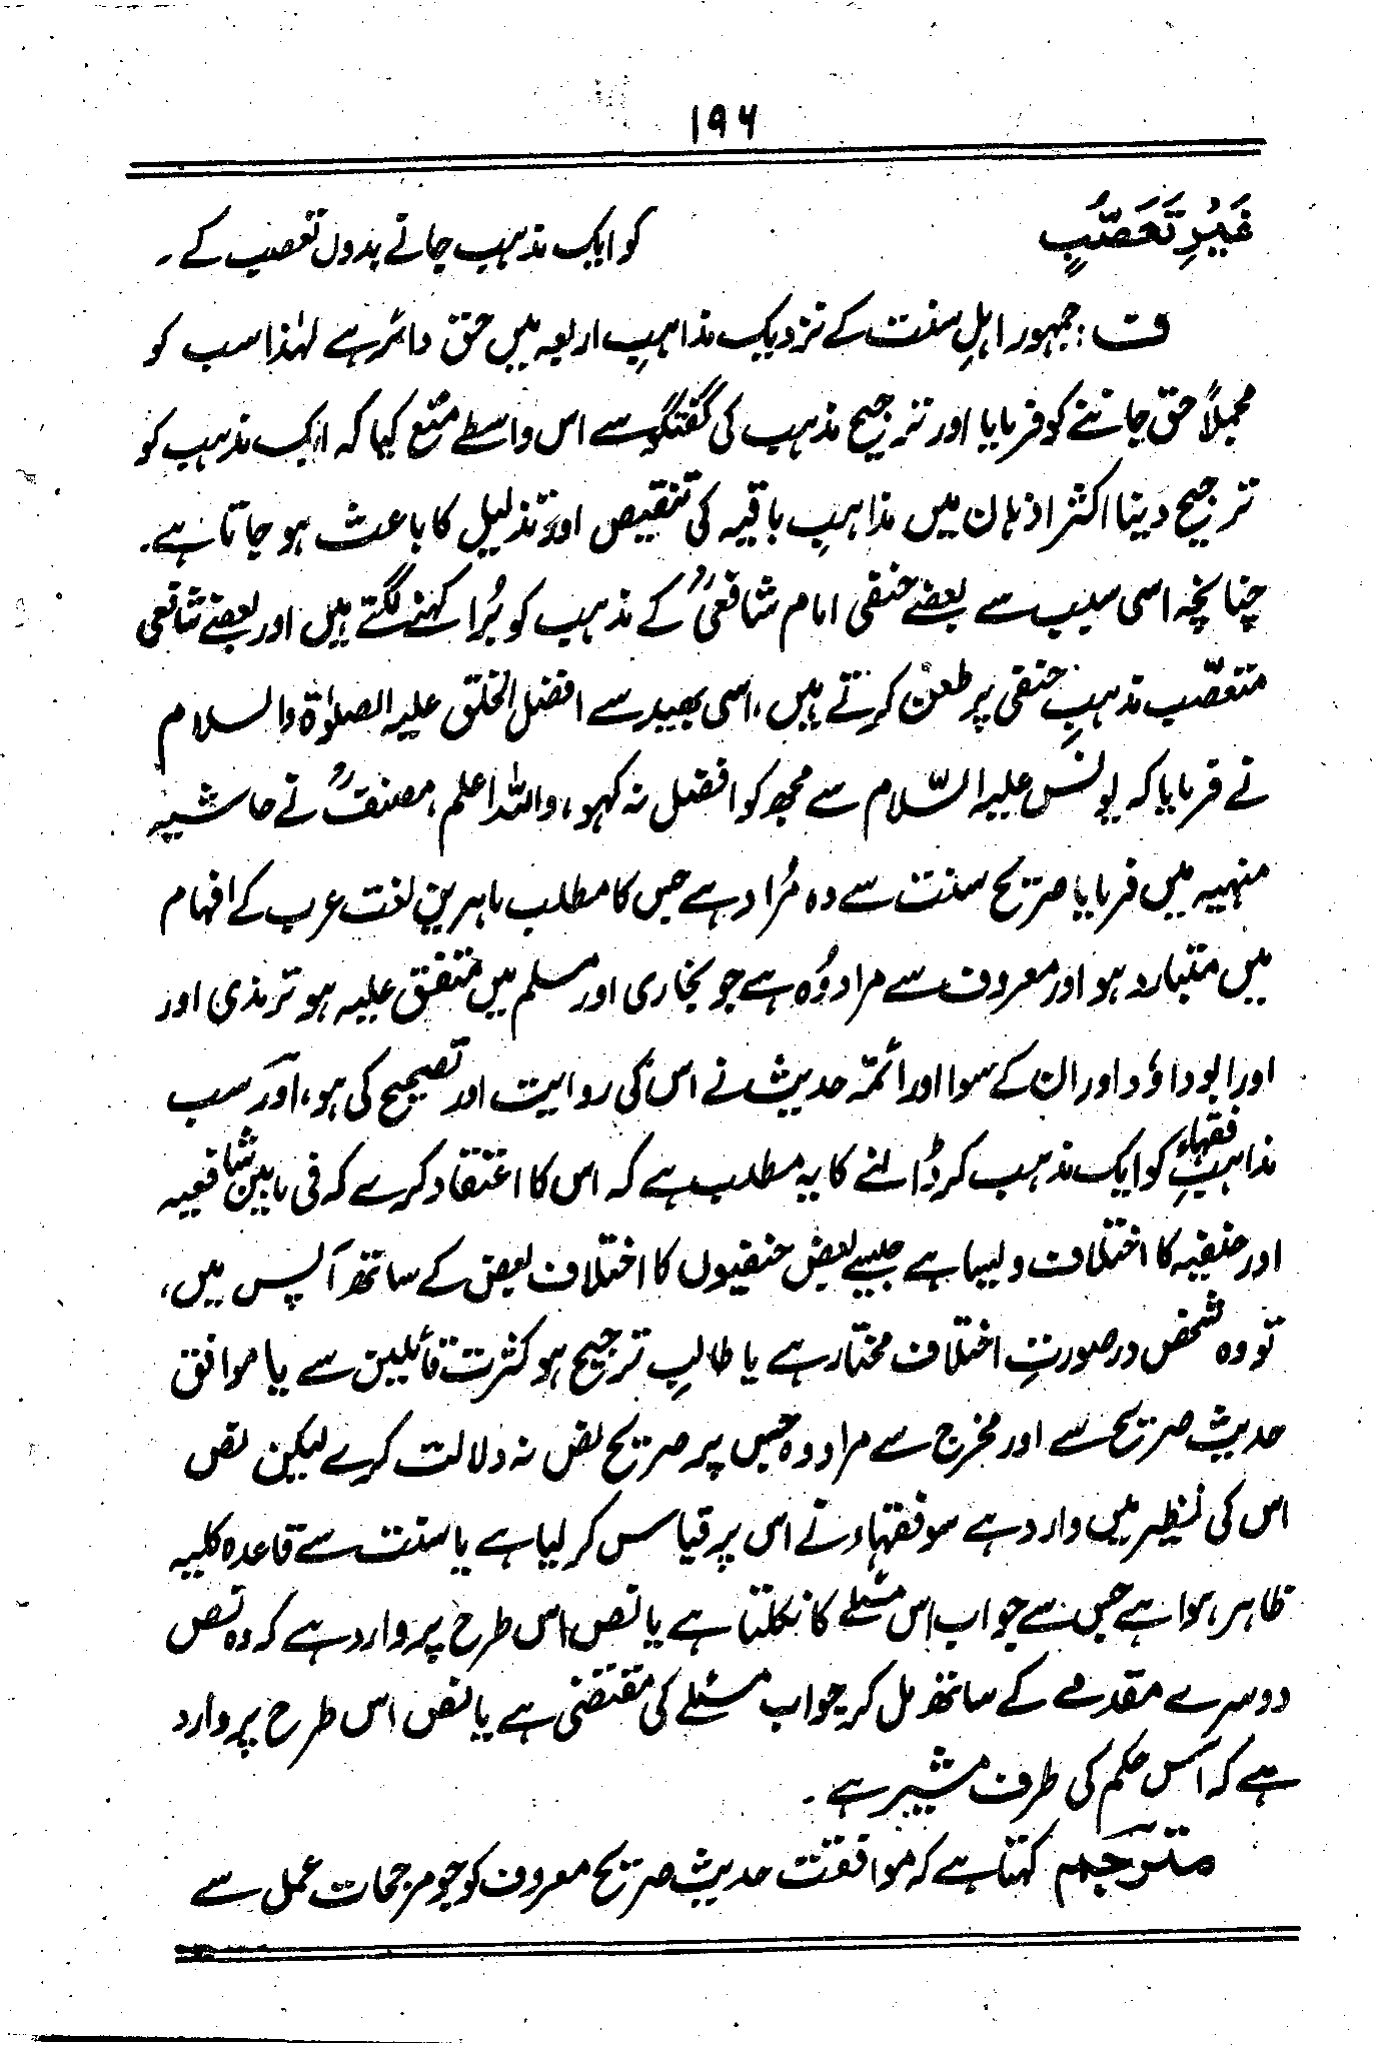 ۱۹۶
غَيْرِ تَعَصُّبٍ
کو ایک مذہب جانے بدوں تعصب کے ۔
ف : جمہور اہلِ سنت کے نزدیک مذاہبِ اربعہ میں حق دائر ہے لہٰذا سب کو
مجملاً حق جاننے کو فرمایا اور ترجیح مذہب کی گفتگو سے اس واسطے منع کیا کہ ایک مذہب کو
ترجیح دینا اکثر اذہان میں مذاہبِ باقیہ کی تنقیص اور تذلیل کا باعث ہو جاتا ہے۔
چنانچہ اسی سبب سے بعضے حنفی امام شافعیؒ کے مذہب کو بُرا کہنے لگتے ہیں اور بعضے شافعی
متعصّب مذہبِ حنفی پر طعن کرتے ہیں، اسی بھید سے افضل الخلق علیہ الصلوٰۃ والسلام
نے فرمایا کہ یونس علیہ السّلام سے مجھ کو افضل نہ کہو، واللہ اعلم، مصنفؒ نے حاشیہ
منہیہ میں فرمایا صریح سنت سے وہ مُراد ہے جس کا مطلب ماہرینِ لغت عرب کے افہام
میں متبادر ہو اور معروف سے مراد وُہ ہے جو بخاری اور مسلم میں متفق علیہ ہو ترمذی اور
اور ابوداؤد اور ان کے سوا اور ائمّہ حدیث نے اس کی روایت اور تصحیح کی ہو، اور سب
مذاہبِ فقہاء کو ایک مذہب کر ڈالنے کا یہ مطلب ہے کہ اس کا اعتقاد کرے کہ فی مابین شافعیہ
اور حنفیہ کا اختلاف ویسا ہے جیسے بعض حنفیوں کا اختلاف بعض کے ساتھ آپس میں،
تو وہ شخص در صورتِ اختلاف مختار ہے یا طالبِ ترجیح ہو کثرت قائلین سے یا موافق
حدیث صریح سے اور مخرج سے مراد وہ جس پر صریح نص نہ دلالت کرے لیکن نص
اس کی نظیر میں وارد ہے سو فقہاء نے اس پر قیاس کر لیا ہے یا سنت سے قاعدہ کلیہ
ظاہر ہوا ہے جس سے جواب اس مسٔلے کا نکلتا ہے یا نص اس طرح پر وارد ہے کہ وہ نص
دوسرے مقدمے کے ساتھ مل کر جواب مسئلے کی مقتضی ہے یا نص اس طرح پر وارد
ہے کہ اس حکم کی طرف مشیر ہے ۔
مترجم کہتا ہے کہ موافقت حدیث صریح معروف کو جو مرجحات عمل سے